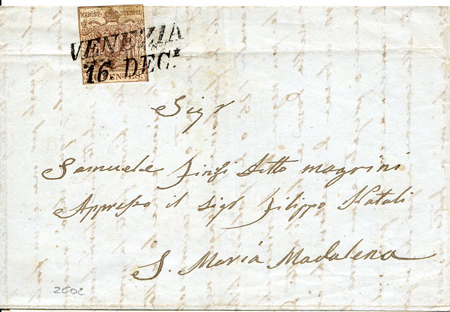 VENEZIA
16 DEC.
Sigr
Samuele detto magrini
Appresso il Sigr Filippo Natali
S. Maria Madalena